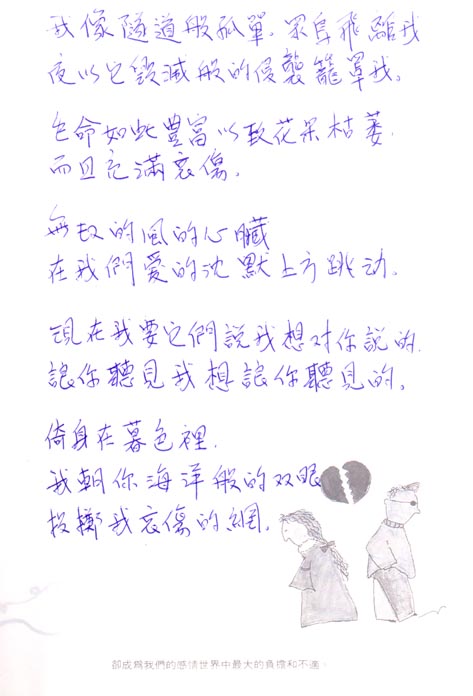 我像隧道般孤單。眾鳥飛離我
夜以它毀滅般的侵襲籠罩我。
生命如此豐富以致花朵枯萎.
而且充滿哀傷。
無数的風的心臟
在我們愛的沈默上方跳动。
現在我要它們說我想对你說的.
讓你聽見我想讓你聽見的。
倚身在暮色裡.
我朝你海洋般的双眼
投擲我哀傷的網。
卻成為我們的感情世界中最大的負擔和不適。